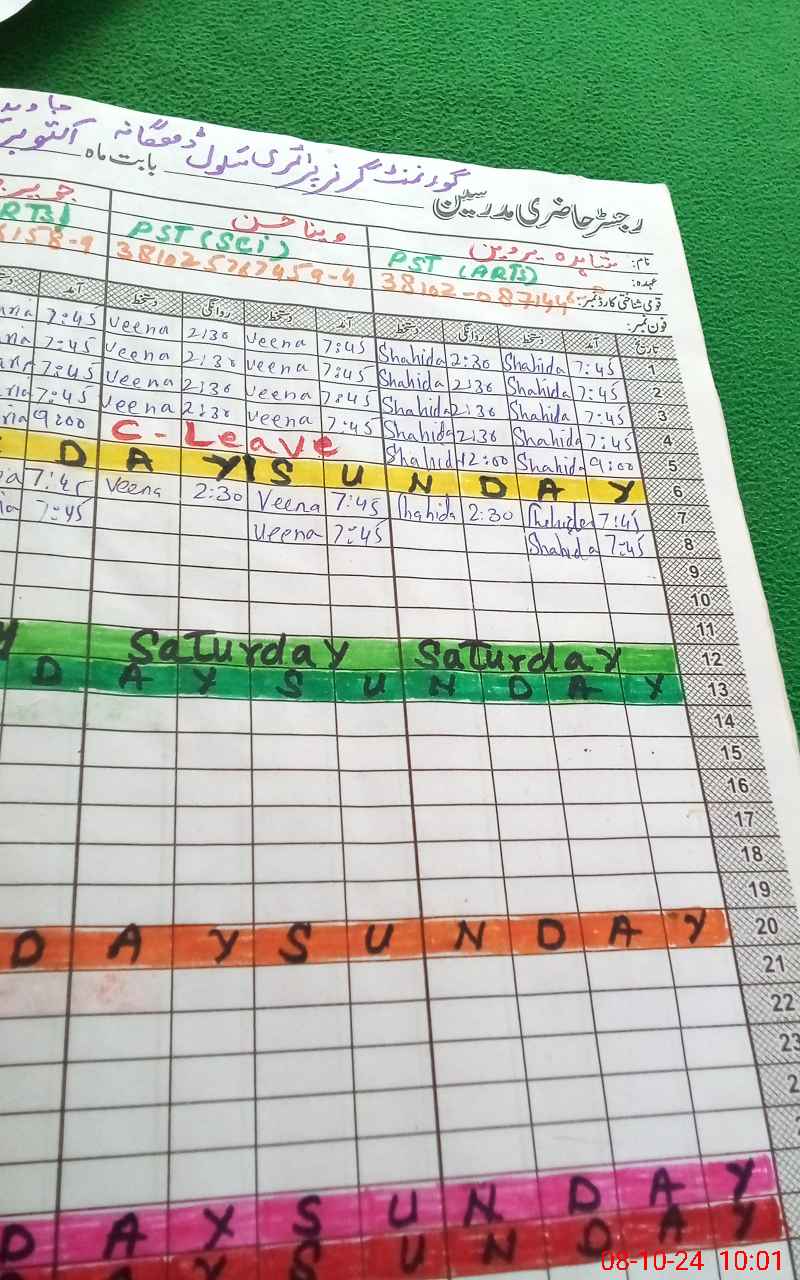 گورنمنٹ گرلز پرائمری سکول ڈھگانہ
بابت ماہ اکتوبر
رجسٹر حاضری مدرسین
نام: شاہدہ پروین
وینا حسن
عہدہ: PST (ARTS)
PST (SCi)
قومی شناختی کارڈ نمبر:
فون نمبر:
تاریخ آمد دستخط روانگی دستخط آمد دستخط روانگی دستخط آمد
1 7:45 Shahida 2:30 Shahida 7:45 Veena 2:30 Veena 7:45
2 7:45 Shahida 2:30 Shahida 7:45 Veena 2:30 Veena 7:45
3 7:45 Shahida 2:30 Shahida 7:45 Veena 2:30 Veena 7:45
4 7:45 Shahida 2:30 Shahida 7:45 Veena 2:30 Veena 7:45
5 9:00 Shahida 12:00 Shahida C-Leave 9:00
6 SUNDAY DAY
7 7:45 Shahida 2:30 Shahida 7:45 Veena 2:30 Veena 7:45
8 7:45 Shahida 7:45 Veena 7:45
9
10
11
12 Saturday Saturday
13 SUNDAY DAY
14
15
16
17
18
19
20 SUNDAY DAY
21
22
23
SUNDAY DAY
SUNDAY DAY
08-10-24 10:01